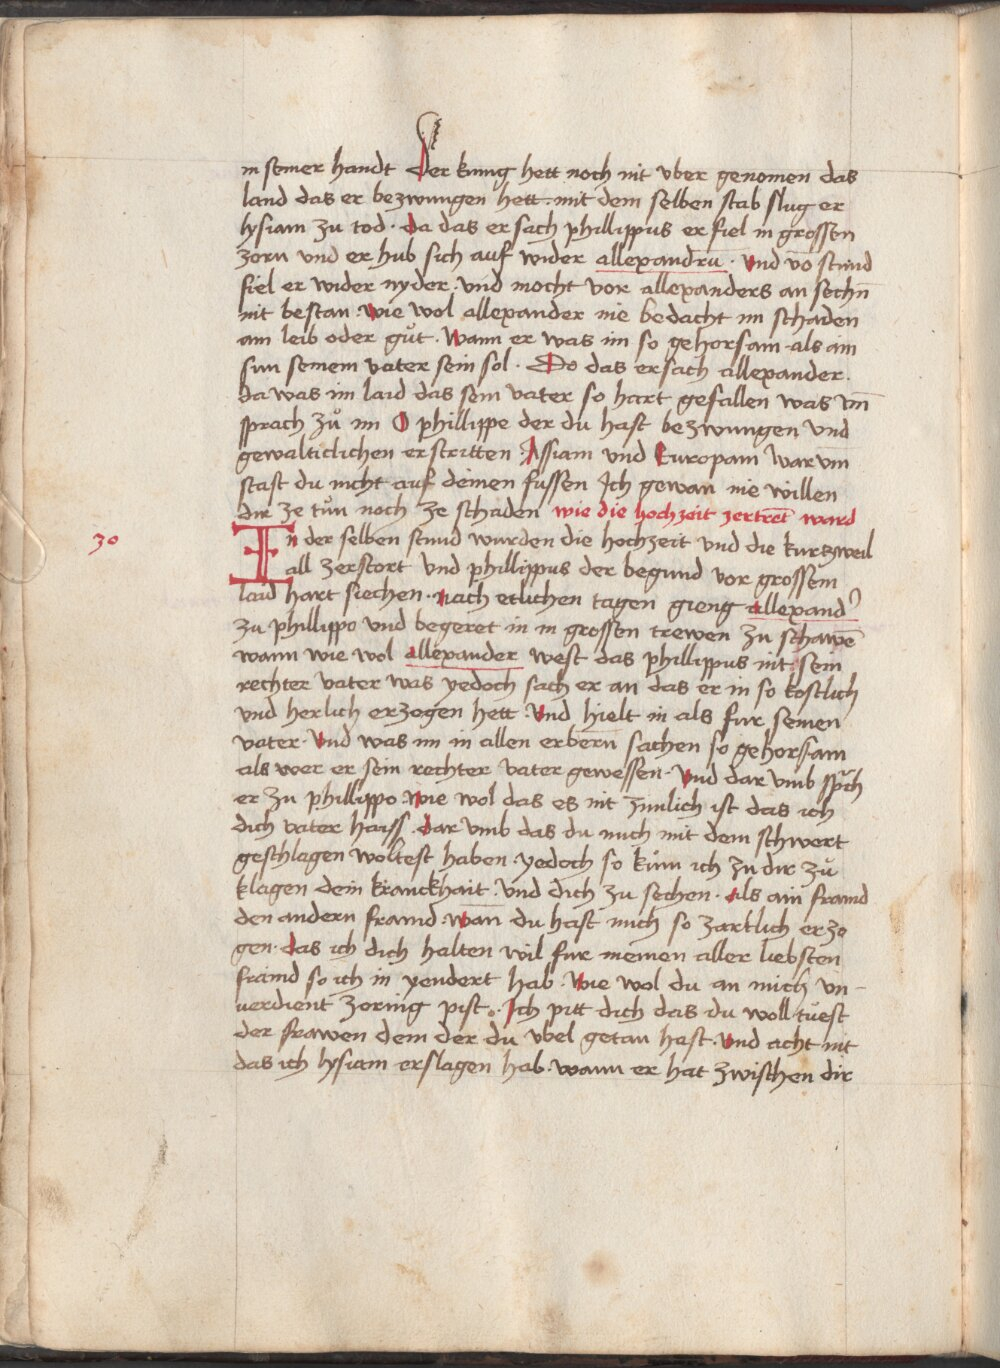 in seiner handt Der kunig hett noch nit vber genomen das
land das er bezwungen hett. mit dem selben stab slug er
lysiam zů tod. da das ersach phillippus er fiel in grossen
zorn und er hub sich auf wider allexandrū. Vnd vō stund
fiel er wider nyder. vnd mocht vor allexanders an sechn̄
nit bestan. wie wol allexander nie bedacht im schaden
am leib oder gůt. Wann er was im so gehorsam als ain
sun seinem vater sein sol. Do das ersach allexander.
da was im laid das sein vater so hart gefallen was vn̄
sprach zů im O phillippe der du hast bezwungen vnd
gewalticlichen erstritten Assiam vnd Europam warvm
stast du nicht auf deinen fussen Ich gewan nie willen
dir ze tůn noch ze schaden wie die hochzeit zertret ward
30
In der selben stund wurden die hochzeit vnd die kurtzweil
all zerstort vnd phillippus der begund vor grossem
laid hart siechen. nach etlichen tagen gieng allexand'
zu phillippo vnd begeret in in grossen trewen zu schawē
wann wie wol allexander west das phillippus nit sein
rechter vater was yedoch sach er an das er in so kostlich
vnd herlich erzogen hett. Vnd hielt in als fur seinen
vater. Vnd was im in allen erbern sachen so gehorsam
als wer er sein rechter vater gewessen. Vnd dar vmb sp̄ch
er zu phillippo. wie wol das es nit zimlich ist das ich
dich vater haiss. dar vmb das du mich mit dem schwert
geschlagen woltest haben. yedoch so kům ich zu dir zů
klagen dein kranckhait. vnd dich zu sechen. als ain framd
den andern framd. wan̄ du hast mich so zartlich erzo
gen. das ich dich halten wil fur meinen aller liebsten
framd so ich in yendert hab. Wie wol du an mich vn-
verdient zornig pist. Ich pitt dich das du woll tuest
der frawen dem der du vbel getan hast. Vnd acht nit
das ich lysiam erslagen hab. wann er hat zwischen dir